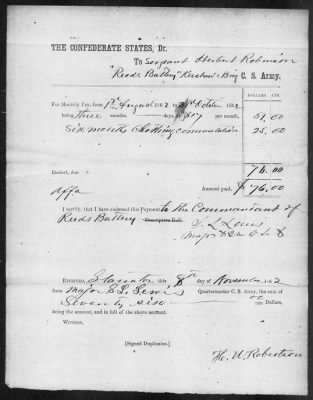 THE CONFEDERATE STATES, Dr.
To Sergeant Herbert Robinson
"Reeds Battery" Kershaw's Brig C. S. Army.
DOLLARS CTS.
For Monthly Pay, from 1st August 1862 to 31st October 1862
being three months, days @ $17 per month, 51.00
Six months Clothing commutation 25.00
76.00
Deduct, due
Amount paid, $ 76.00
I certify, that I have endorsed this Payment to the Commandant of
Reeds Battery Descriptive Roll.
Major
Received, Staunton this 8th day of November 1862
from Major Lewis Quartermaster C. S. Army, the sum of
Seventy six Dollars,
being the amount, and in full of the above account.
Witness,
[Signed Duplicates.]
H. U. Robertson